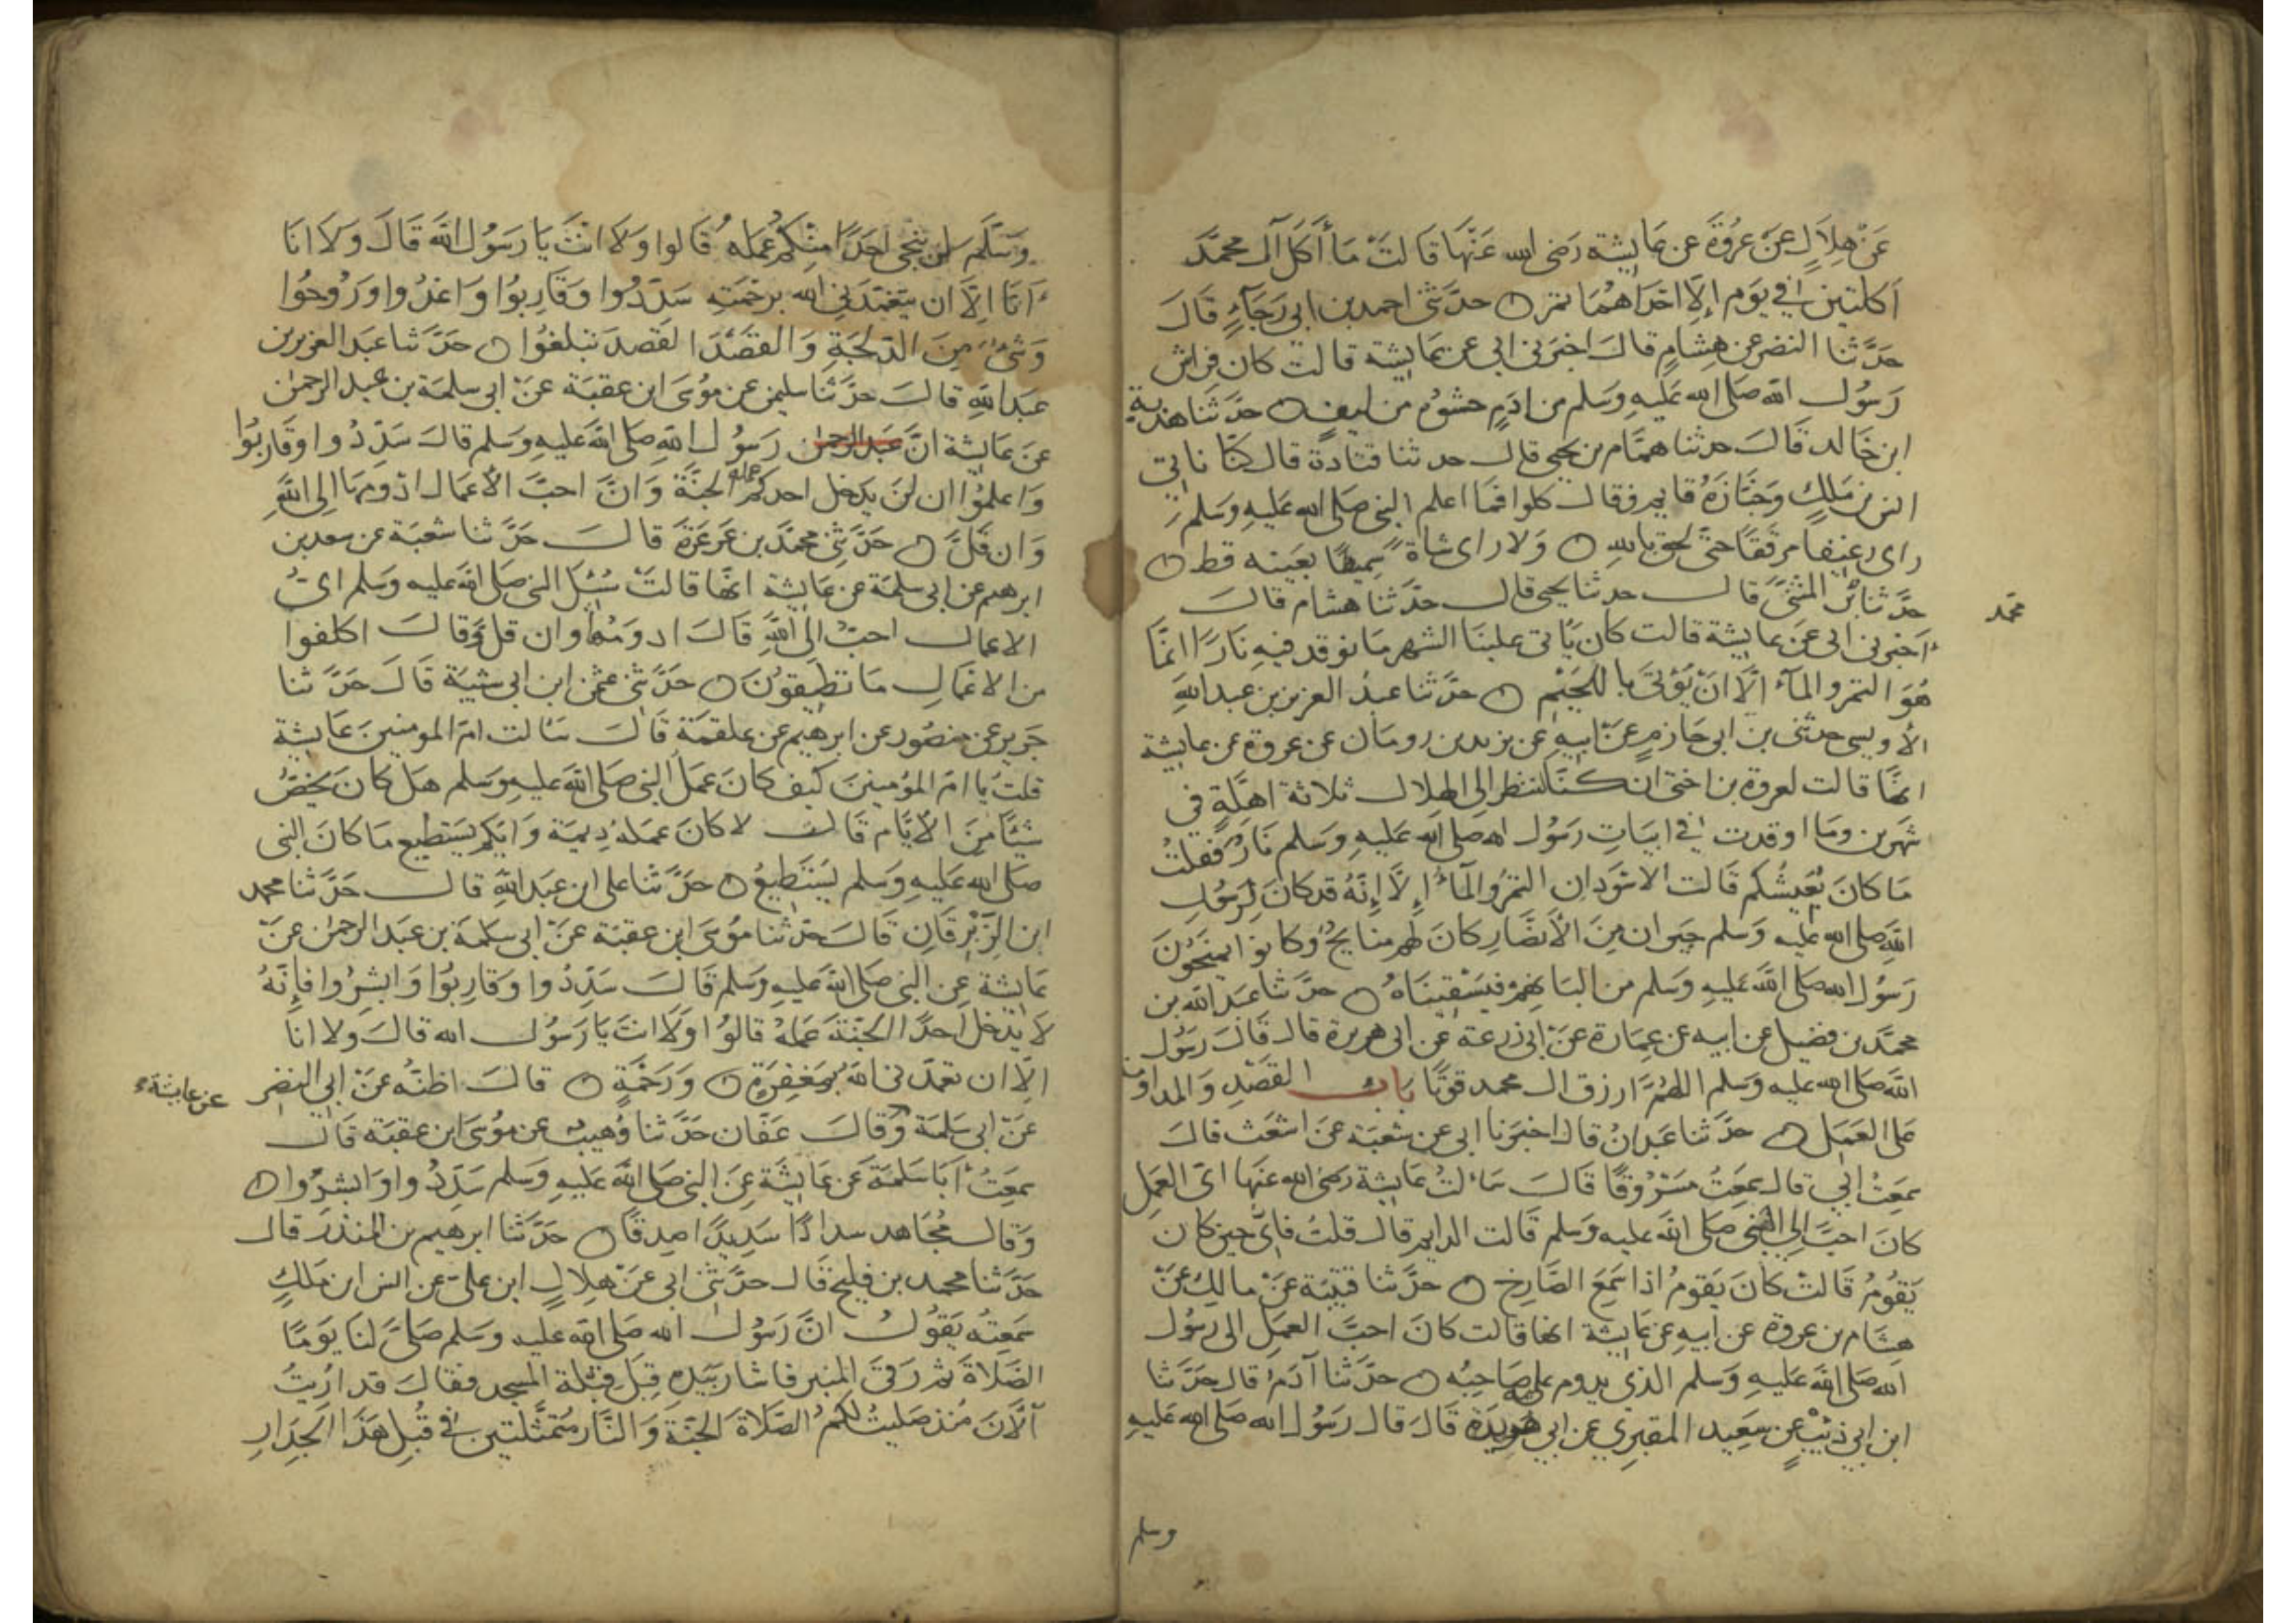 عَنْ هِلَالٍ عَنْ عُرْوَةَ عن عَايشة رَضى الله عَنْهَا قَالَتْ مَا أَكَلَ آل محمَّد
اَكلتين في يَوم إلَّا احْدَاهُمَا تمر ۝ حدَّثنى احمد بن ابى رَجَآءٍ قَالَ
حَدَّثنَا النضر عن هِشامٍ قالَ اخبَرنى ابى عن عَايشة قالت كان فراش
رَسُول الله صَلى الله عَليهِ وَسَلم من ادَمٍ حشوُه من ليف ۝ حدَّثنَا هدبة
ابن خَالد قَالَ حدثنا همَّام بن يحيى قال حدثنا قتادة قال كنَّا ناتى
انس بن مَلكٍ وَخَبَّازُهُ قايم فقال كلوا فمَا اعلم النبى صَلى الله عَليهِ وَسَلم
راى رغيفا مرققًا حتى لحق بالله ۝ وَلا راى شاة سَميطًا بعَينه قط ۝
حدَّثنا بن المثنَّى قال حدثنا يحيى قال حدَّثنا هشام قالَ
محمد
اَخبرنى ابى عَن عايشة قالت كان يَاتى علينَا الشهر مَا نوقد فيهِ نَارًا انمَّا
هُوَ التمر والمآء الَّا انْ نُؤتَى باللحَيْم ۝ حدَّثنا عبدُ العزيز بن عبد اللهِ
الأويسى حدثنى بن ابى حَازم عَنْ ابيهِ عن يزيد بن رومَان عن عروة عن عايشة
انهَّا قالت لعروة بن اختى ان كنَّا لننظر الى الهلال ثلاثة اهلَّةٍ فى
شهرين ومَا اوقدت في ابيَاتِ رَسُول الله صلى الله عَليهِ وَسَلم نَارٌ فقلتُ
مَا كانَ يُعَيِشُكم قالت الاسْوَدان التمرُ والمَآءُ إلَّا إِنَّهُ قد كانَ لِرَسُولِ
اللهِ صَلى الله عليه وَسَلم جيران مِنَ الأَنصَارِ كانَ لهم منايحُ وَكانوا يمنحُونَ
رَسُول الله صَلى اللهَ عَليهِ وَسَلم من البَانهِمْ فيَسْقِينَاهُ ۝ حدَّثنا عَبْد الله بن
محمَّد بن فضيل عن ابيه عن عِمَارة عَنْ ابى زرعة عَن ابى هريرة قال قَالَ رَسُول
اللهَ صَلى الله عَليهِ وَسَلم اللهُمَّ ارزق ال محمد قوتًا بَابُ القصْدِ وَالمداومة
عَلى العَمَل ۝ حدَّثنا عَبْدانُ قال اخبَرنا ابى عن شعْبَة عَن اشعَث قالَ
سَمِعَتُ ابي قال سَمِعَتُ مَسْرُوقًا قَالَ سَالتُ عَايشة رَضى الله عنهَا اىّ العَمِل
كانَ احبَّ الى النبى صَلى الله عليه وَسَلم قَالت الدايم قال قلتُ فاىَّ حين كان
يَقُومُ قَالتْ كانَ يَقومُ اذا سَمِعَ الصَّارخ ۝ حدَّثنا قتيبَة عَنْ مالِكٍ عَنْ
هشام بن عروة عن ابيهِ عن عَايشة انها قالت كانَ احبَّ العمَلِ الى رسُول
الله صَلى الله عَليهِ وَسَلم الذى يدوم عليه صَاحِبُه ۝ حدَّثنا آدَمُ قال حَدَّثنا
ابن ابى ذئبْ عن سَعِيد المقبرِي عن ابى هريرة قَالَ قال رَسُول الله صَلى الله عَليهِ
وسلم
وَسَلَّمَ لن ينجى احَدًا منكم عَمَله قَالوا وَلَا انْتَ يَا رَسُول الله قَالَ وَلَا انَا
اَنَا الَّا ان يتغمَّدَنى الله برحْمَتِهِ سَدِّدُوا وَقَارِبُوا وَاغدُوا وَرُوحُوا
وَشىْءٌ مِنَ الدّلجَةِ وَالقصْدَ القَصدَ تبلغُوا ۝ حَدَّثنا عبَد العزيز بن
عبَد اللهِ قالَ حدَّثنا سليمن عن موُسَى ابن عقبَة عَنْ ابى سلمَة بن عبد الرحمٰن
عَن عَايشة انَّ عبَد الرحمٰن رَسوُل اللهِ صَلى اللهَ عَليهِ وَسَلم قالَ سَدِّدُوا وقَاربُوَا
وَاعلمُوا ان لنْ يَدخل احدكم عمله الجنَّةَ وَانَّ احبَّ الأعمَال ادْومهَا الى اللهِ
وَان قلَّ ۝ حَدَّثَنِى محمَّد بن عَرعَرَة قالَ حَدَّثنا شعْبَة عن سعد بن
ابرهيم عن ابى سلمَة عن عَايشة انهَّا قالتْ سُئِلَ النبى صَلى الله عَليه وَسَلم اىُّ
الاعمال احبّ الى اللهِ قَالَ ادوَمُهَا وان قل وَقالَ اكلفوا
من الاعْمَالِ مَا تطيقُونَ ۝ حَدَّثنى عثمٰن ابن ابى شيبَة قَالَ حَدَّثنا
جَرير عن منصُور عن ابرهيم عن علقمَة قَالَ سَالت امّ المومنينَ عَايشة
قلتُ يَا امّ المؤمِنينَ كَيف كانَ عَمَل النبى صَلى الله عَليهِ وَسَلم هَل كانَ يَخصُّ
شيْئًا مِنَ الأيَّام قَالت لا كانَ عمَلهُ ديمَة وَايّكم يَسْتطيع مَا كانَ النبى
صَلى الله عَليهِ وَسَلم يَسْتَطِيعُ ۝ حَدَّثنا على ابن عَبَد اللهِ قالَ حَدَّثنا محمد
ابن الزِّبْرِقَانِ قَالَ حدثنا مُوسَى ابن عقبَة عَنْ ابى سَلمَة بن عَبَد الرحمٰن عَنْ
عَايشة عن النبى صَلى الله عَليهِ وَسَلم قَالَ سَدِّدُوا وَقَارِبُوَا وَابشِرُوا فَإِنَّهُ
لَا يُدْخل احَدًا الجنَّة عَمَلهُ قالوُا وَلَا انتَ يَا رَسُول الله قالَ وَلا انَا
الَّا ان تغمّدَنى اللهُ بمَغفِرَةٍ ۝ وَرَحمَةٍ ۝ قالَ اظنّه عَنْ ابى النضر
عن عايشةَ
عَنْ ابى سَلمَة وَقالَ عَفَّان حَدَّثنا وُهيبٌ عن موُسَى ابن عقبَة قالَ
سَمِعَتُ اَبَا سَلمَة عَن عَايشَة عَن النبى صَلى الله عَليهِ وَسَلم سَدِّدُوا وَابشِرُوا ۝
وَقال مُجَاهد سدادًا سَدِيدًا صِدقًا ۝ حدَّثنا ابرهيم بن المنذر قال
حدَّثنا محمد بن فليح قَال حدَّثنى ابى عَنْ هِلالٍ ابن علىّ عن انس ابن مَلكٍ
سَمعِته يَقوُلُ انَّ رَسوُل الله صَلى الله عليه وَسَلم صَلَّى لنَا يَومًا
الصَّلاَة ثم رَقىَ المنبر فاشار بيَدِهِ قِبَل قبْلة المسجد فقالَ قد ارُيتُ
اَلْآنَ مُنذ صَليتُ لكمُ الصَّلاَة الجنَّة وَالنَّار مُمَثَّلتين في قُبُلِ هَذَا الجدَارِ